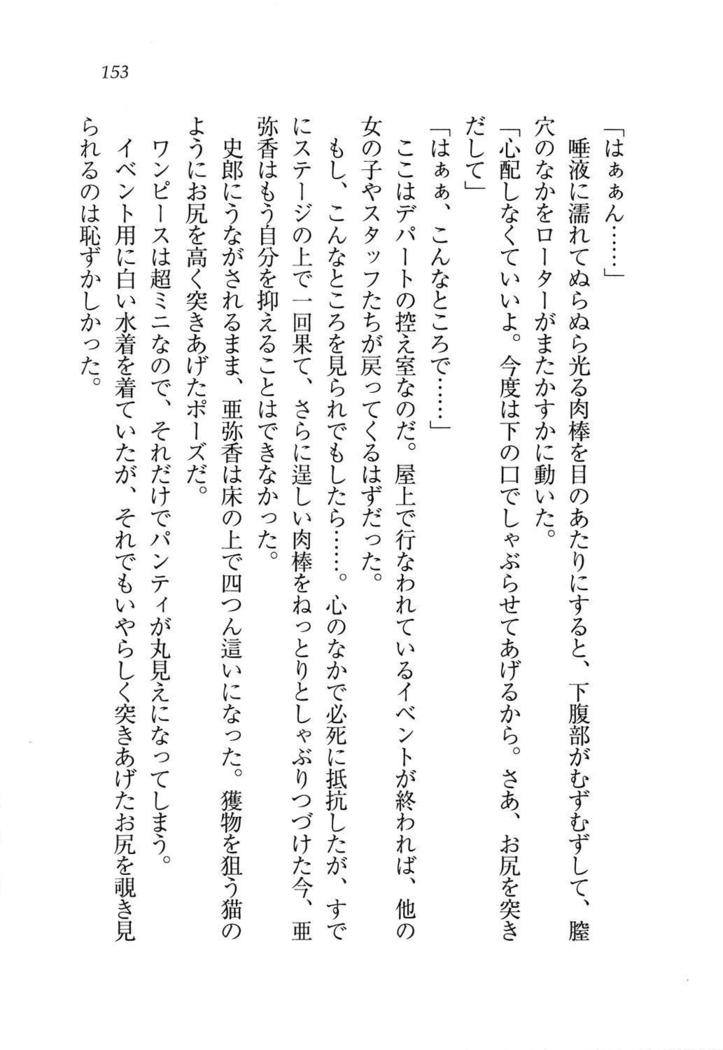 153
「はぁぁん……」
　唾液に濡れてぬらぬら光る肉棒を目のあたりにすると、下腹部がむずむずして、膣
穴のなかをローターがまたかすかに動いた。
「心配しなくていいよ。今度は下の口でしゃぶらせてあげるから。さあ、お尻を突き
だして」
「はぁぁ、こんなところで……」
　ここはデパートの控え室なのだ。屋上で行なわれているイベントが終われば、他の
女の子やスタッフたちが戻ってくるはずだった。
　もし、こんなところを見られでもしたら……。心のなかで必死に抵抗したが、すで
にステージの上で一回果て、さらに逞しい肉棒をねっとりとしゃぶりつづけた今、亜
弥香はもう自分を抑えることはできなかった。
　史郎にうながされるまま、亜弥香は床の上で四つん這いになった。獲物を狙う猫の
ようにお尻を高く突きあげたポーズだ。
　ワンピースは超ミニなので、それだけでパンティが丸見えになってしまう。
　イベント用に白い水着を着ていたが、それでもいやらしく突きあげたお尻を覗き見
られるのは恥ずかしかった。